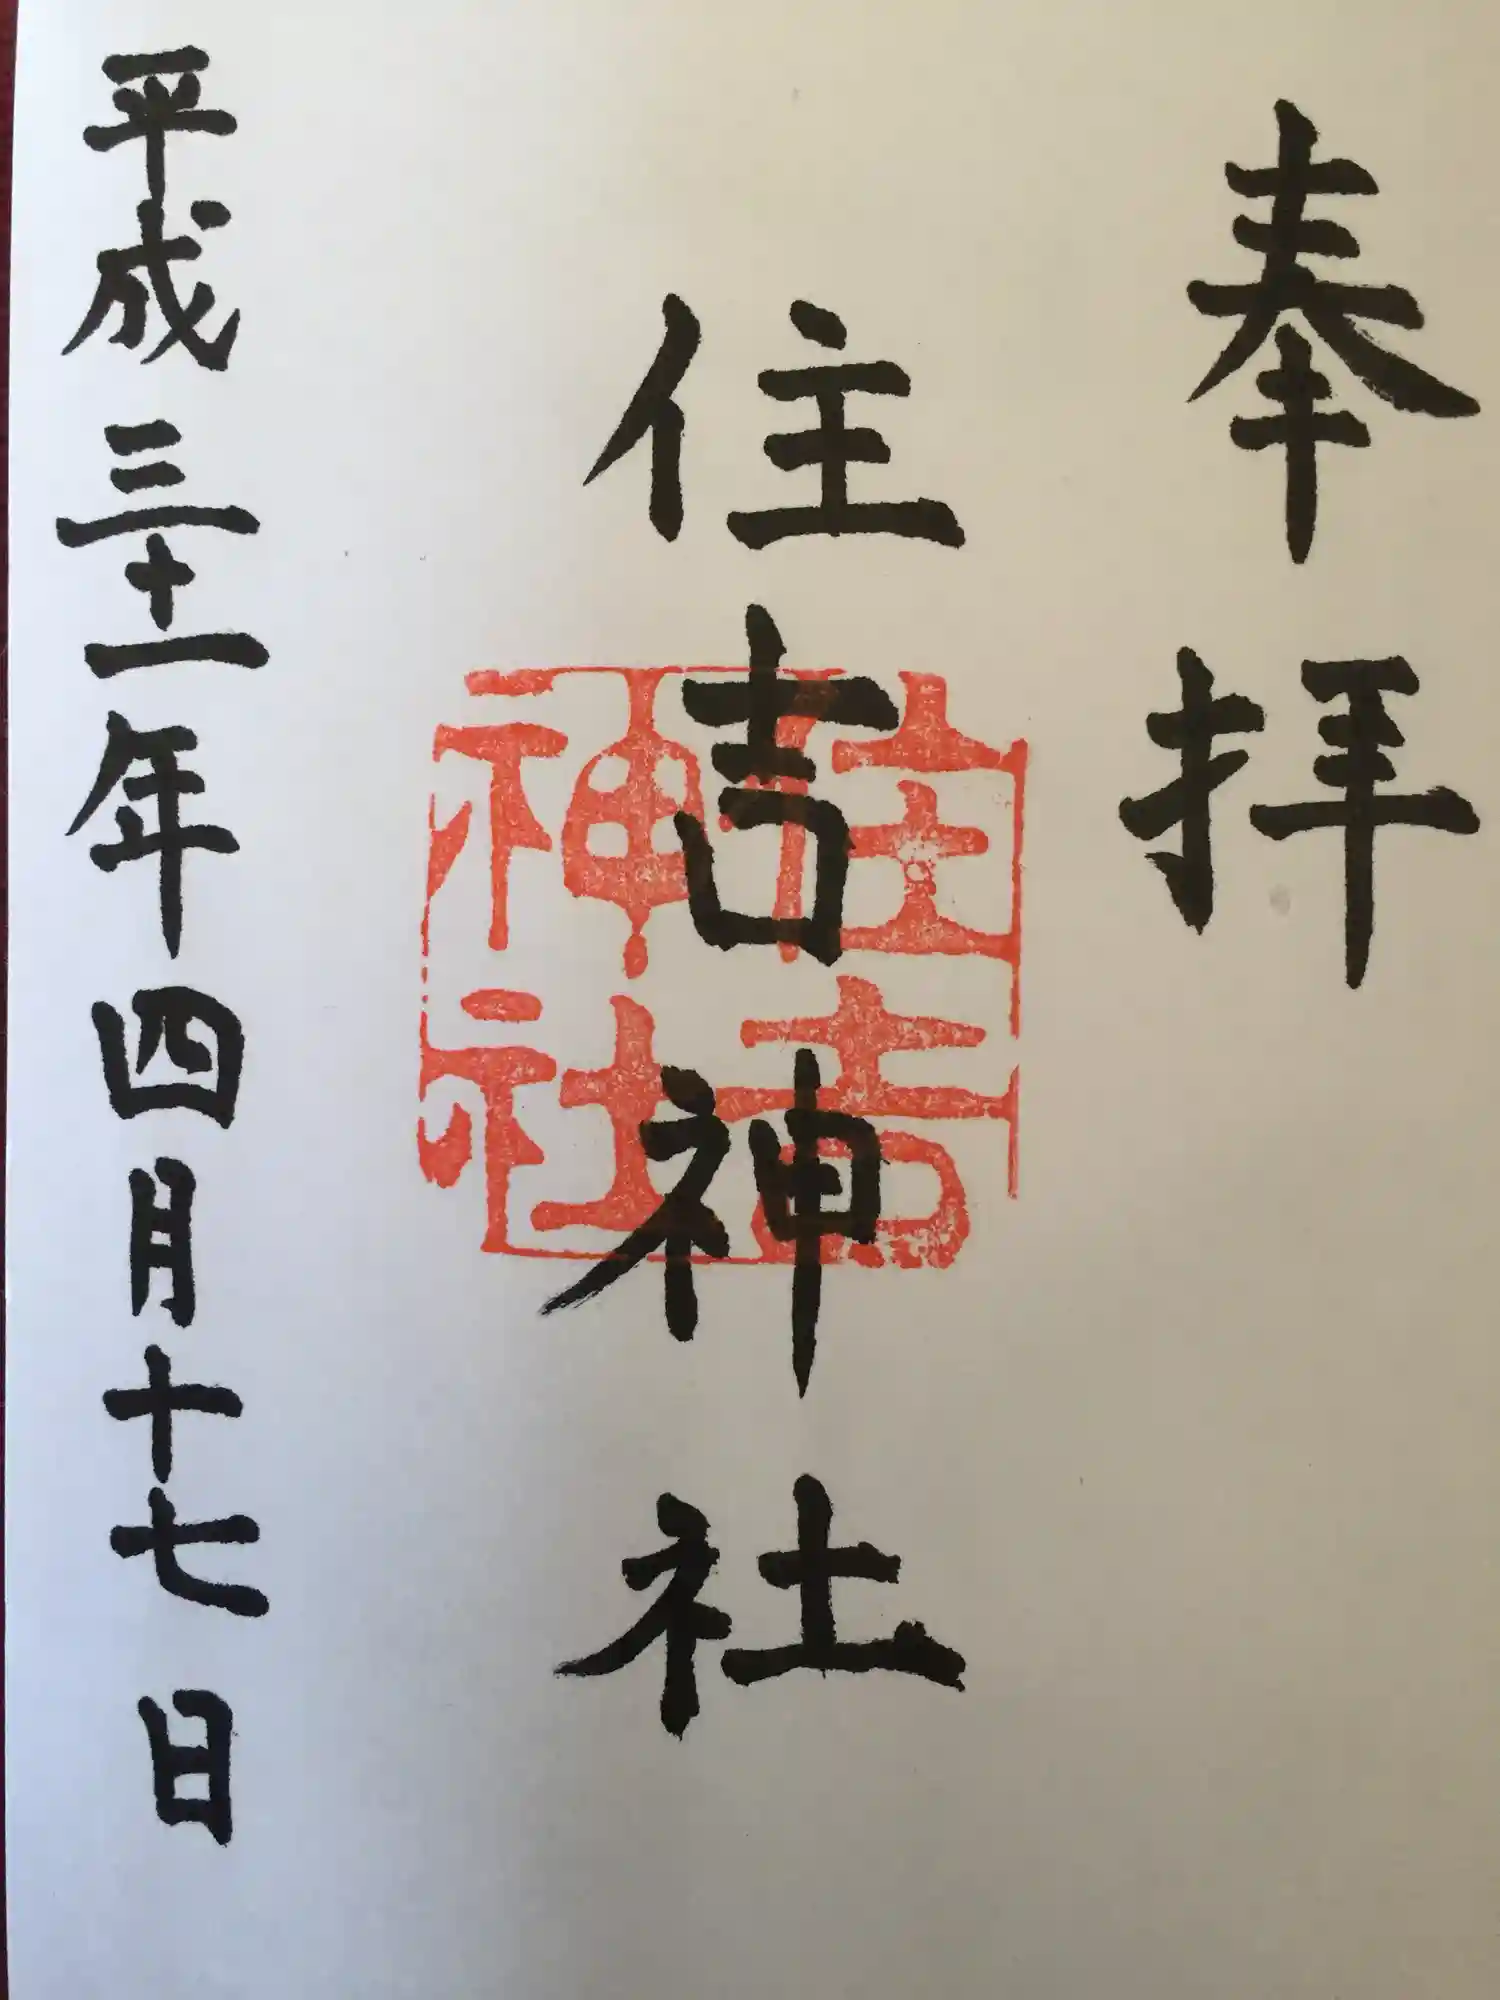 奉拝
住吉神社
住吉
神社
平成三十一年四月十七日